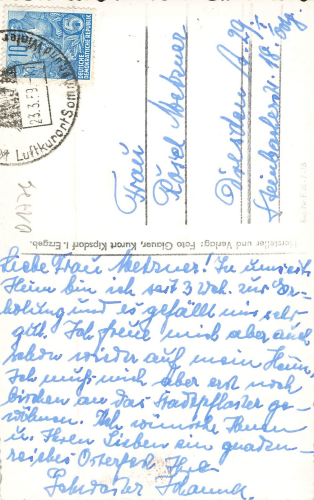 DEUTSCHE DEMOKRATISCHE REPUBLIK
10
23.3.59
Luftkurort Sommer und Winter
Frau
Rösel Metzner
Dresden A 29
Hersteller und Verlag: Foto Glauer, Kurort Kipsdorf i. Erzgeb.
Liebe Frau Metzner! In unserm
Heim bin ich seit 3 Woch. zur Er-
holung und es gefällt uns sehr
gut. Ich freue mich aber auch
schon wieder auf mein Heim,
Ich muß mich aber erst noch
bischen an das Stadtpflaster ge-
wöhnen. Ich wünsche Ihnen
u. Ihren Lieben ein gnaden-
reiches Osterfest. Ihre